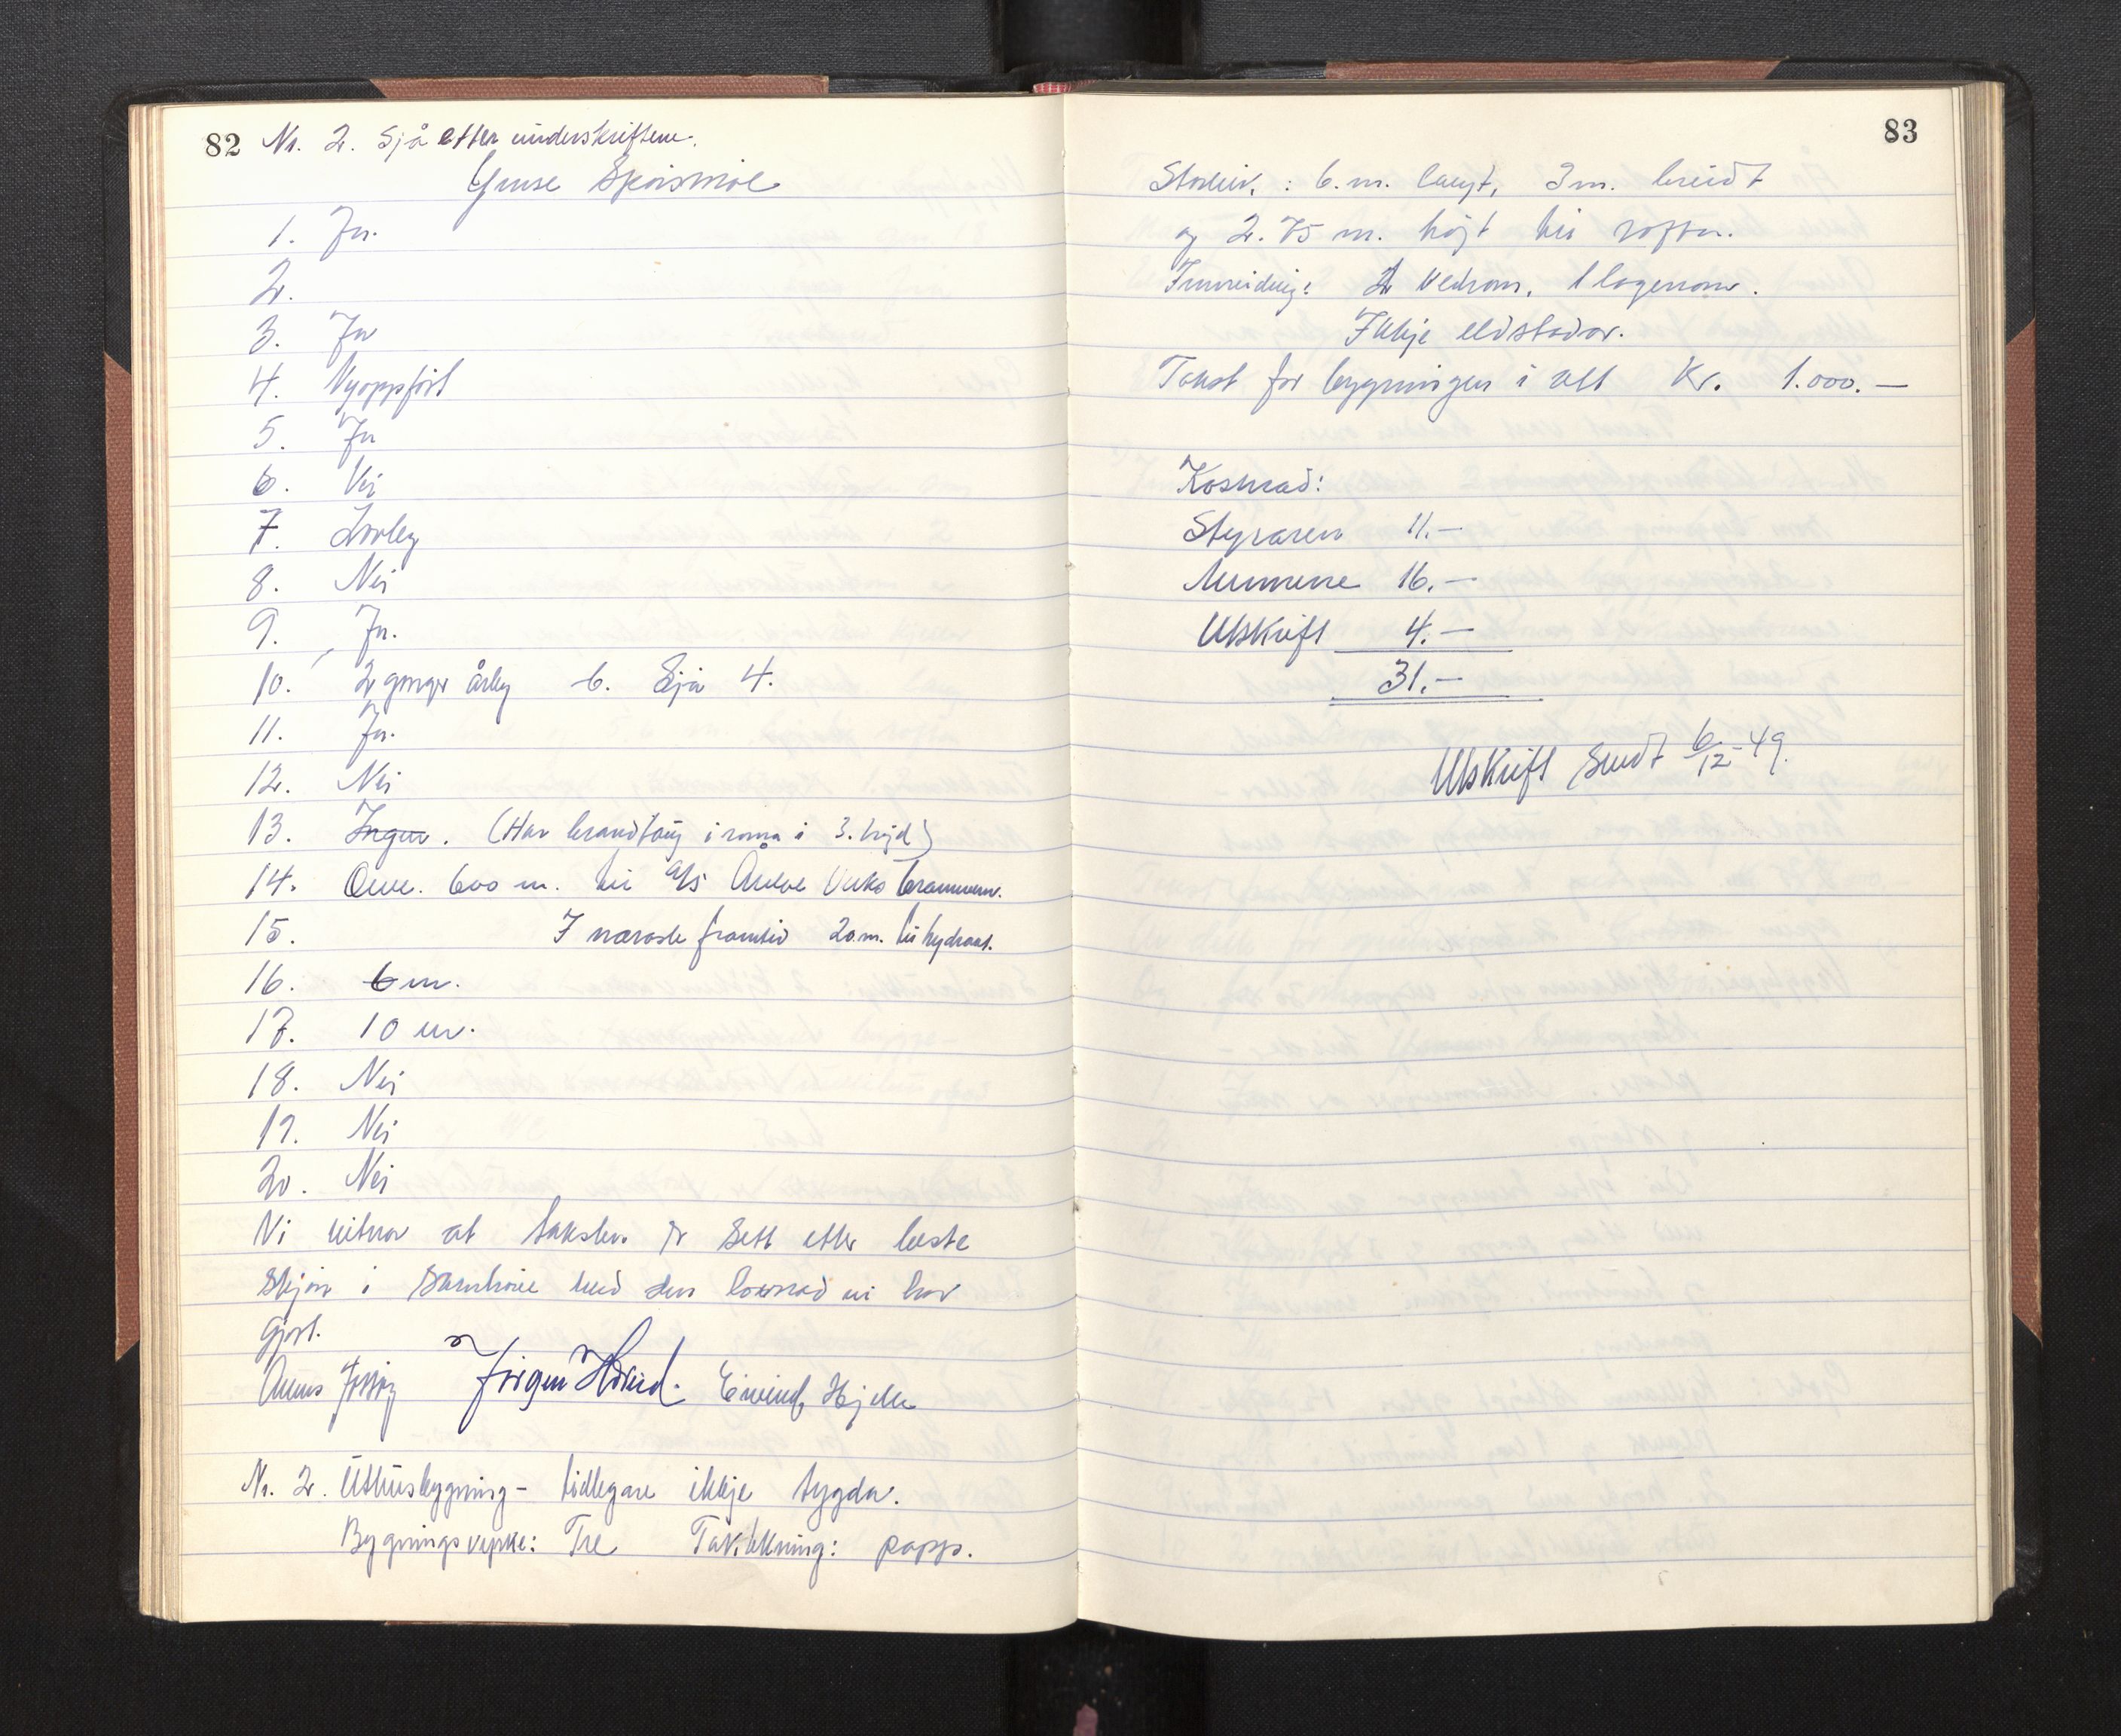 82 Nr. 2. Sjå etter underskriftene.
Ymse Spörsmål
1. Ja.
2.
3. Ja
4. Nyoppfört
5. Ja
6. Nei
7. Lovleg
8. Nei
9. Ja.
10. 2 ganger årleg 6. Sjå 4.
11. Ja.
12. Nei
13. Ingen. (Har brandtaug i roma i 3. högd)
14. Omr. 600 m. til A/S Årdal Verks brannvern.
15. I næraste framtid 20 m. til hydrant.
16. 6 m.
17. 10 m.
18. Nei
19. Nei
20. Nei
Vi vitnar at taksten er sett etter beste
skjön i samhöve med den lovnad vi har
gjort.
Jörgen Eivind Hjelle
Nr. 2. Uthusbygning - tidlegare ikkje trygda.
Bygningsverke: Tre Taktekning: papp.
83
Storleik: 6. m. langt, 3 m. breidt
og 2.75 m. högt til röster.
Innreiding: 2 vedrom, 1 lagerrom.
Ikkje eldstader.
Takst for bygningen i alt Kr. 1.000.—
Kostnad:
Styraren 11.—
Mennene 16.—
Utskrift 4.—
31.—
Utskrift sendt 6/12-49.